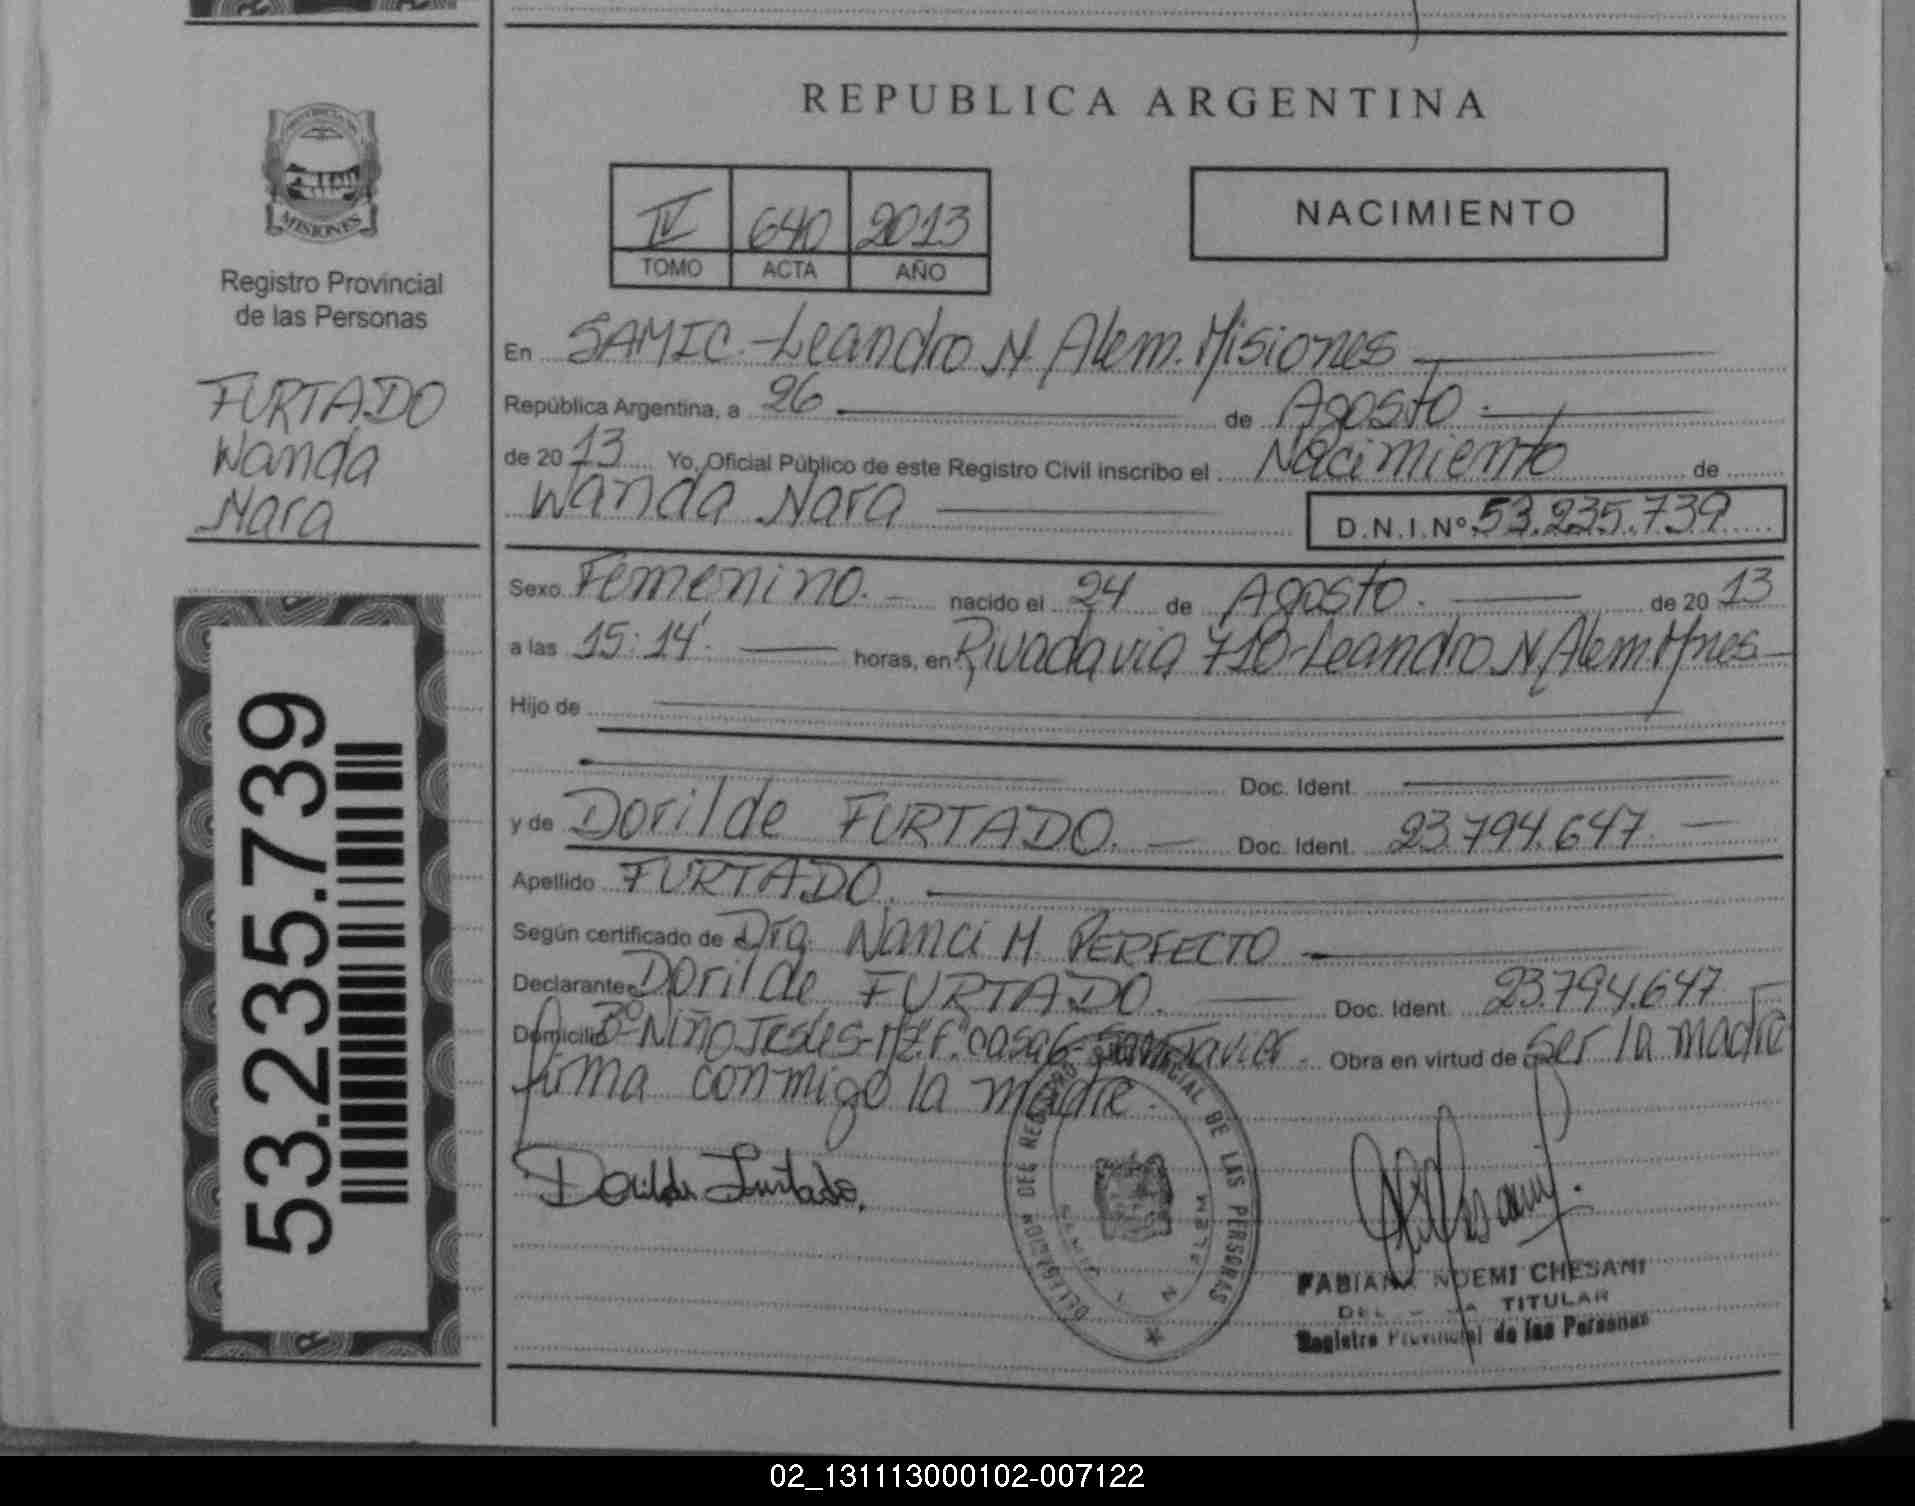 REPUBLICA ARGENTINA
MISIONES
Registro Provincial
de las Personas
FURTADO
Wanda
Nara
53.235.739
IV 640 2013
TOMO ACTA AÑO
NACIMIENTO
En SAMIC.-Leandro N. Alem. Misiones
República Argentina, a 26 de Agosto.
de 2013 Yo, Oficial Público de este Registro Civil inscribo el Nacimiento de
Wanda Nara D.N.I.Nº 53.235.739
Sexo Femenino.- nacido el 24 de Agosto. de 2013
a las 15:14'. horas, en Rivadavia 710-Leandro N Alem. Mnes
Hijo de
Doc. Ident.
y de Dorilde FURTADO. Doc. Ident. 23.794.647.
Apellido FURTADO.
Según certificado de Dra. Nanci M. PERFECTO
Declarante Dorilde FURTADO. Doc. Ident. 23.794.647
Domicilio Bº-Niño Jesús-Mz.F.casa 6-San Javier. Obra en virtud de Ser la madre
firma conmigo la madre.
Dorilde Furtado.
DELEGACION DEL REGISTRO PROVINCIAL DE LAS PERSONAS
FABIANA NOEMI CHESANI
TITULAR
Registro Provincial de las Personas
02_131113000102-007122